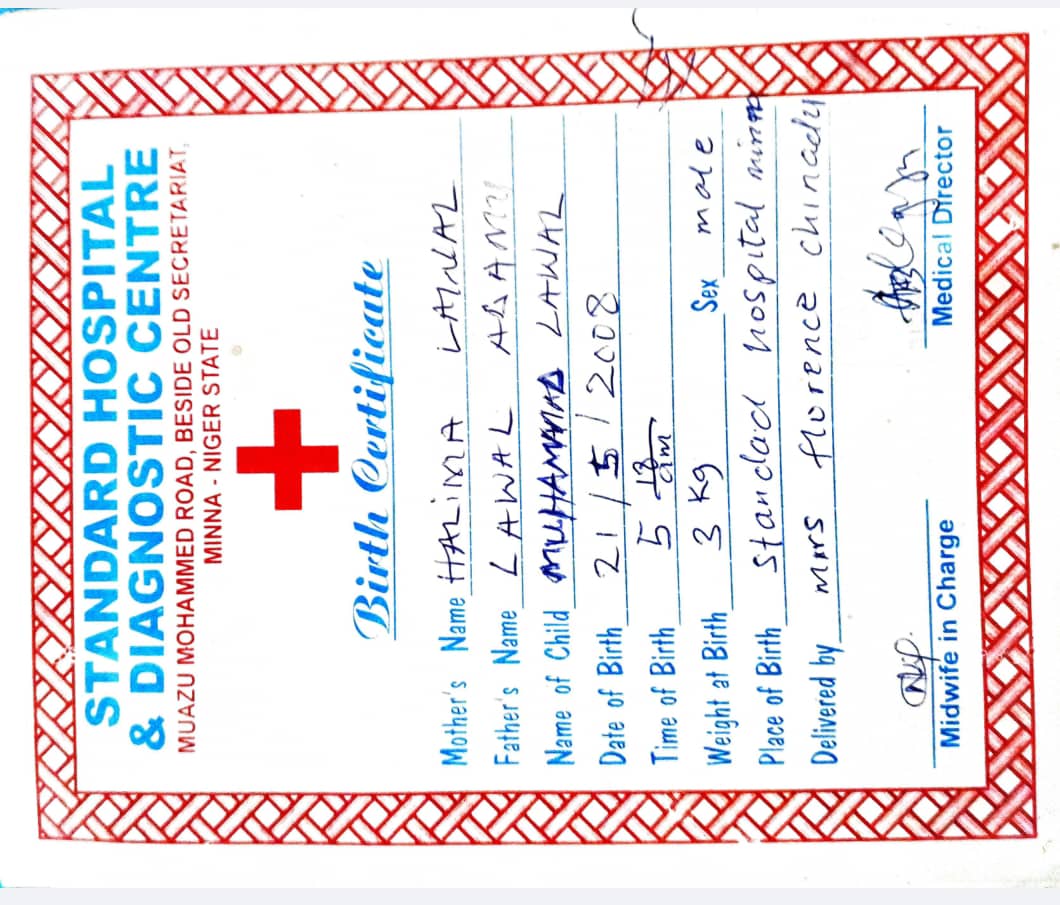 STANDARD HOSPITAL
& DIAGNOSTIC CENTRE
MUAZU MOHAMMED ROAD, BESIDE OLD SECRETARIAT,
MINNA - NIGER STATE
Birth Certificate
Mother's Name HALIMA LAWAL
Father's Name LAWAL
Name of Child MUHAMMAD LAWAL
Date of Birth 21/5/2008
Time of Birth 5 am
Weight at Birth 3 kg Sex male
Place of Birth standad hospital minna
Delivered by mrs florence chinadu
Midwife in Charge Medical Director